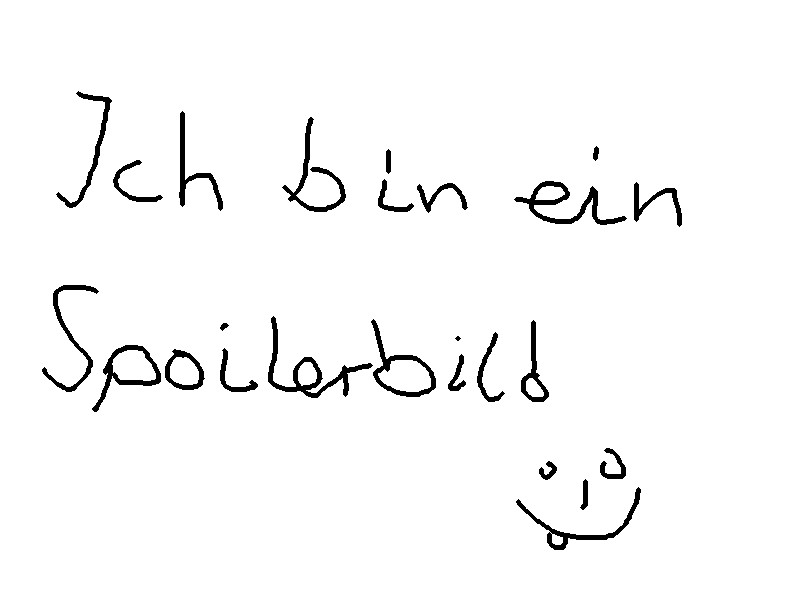 Ich bin ein
Spoilerbild